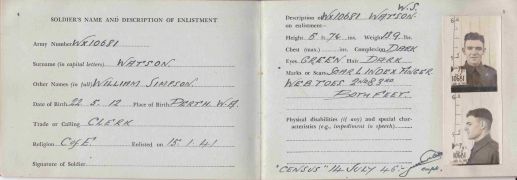 4
SOLDIER'S NAME AND DESCRIPTION OF ENLISTMENT
Army Number WX10681
Surname (in capital letters) WATSON.
Other Names (in full) WILLIAM SIMPSON.
Date of Birth 22.5.12 Place of Birth PERTH W.A.
Trade or Calling CLERK
Religion C of E. Enlisted on 15.1.41
Signature of Soldier
W.S.
Description of WX10681 WATSON
on enlistment—
Height 5 ft. ins. Weight lbs.
Chest (max.) ins. Complexion DARK
Eyes GREEN Hair DARK
Marks or Scars SCAR L INDEX FINGER
WEB TOES 2ND & 3RD
BOTH FEET.
Physical disabilities (if any) and special char-
acteristics (e.g., impediment in speech)
"CENSUS" 14 JULY 46